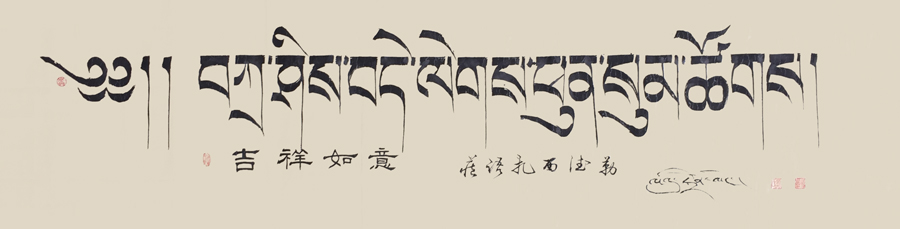 ༄༅།། བཀྲ་ཤིས་བདེ་ལེགས་ཕུན་སུམ་ཚོགས།
吉祥如意
藏语扎西德勒